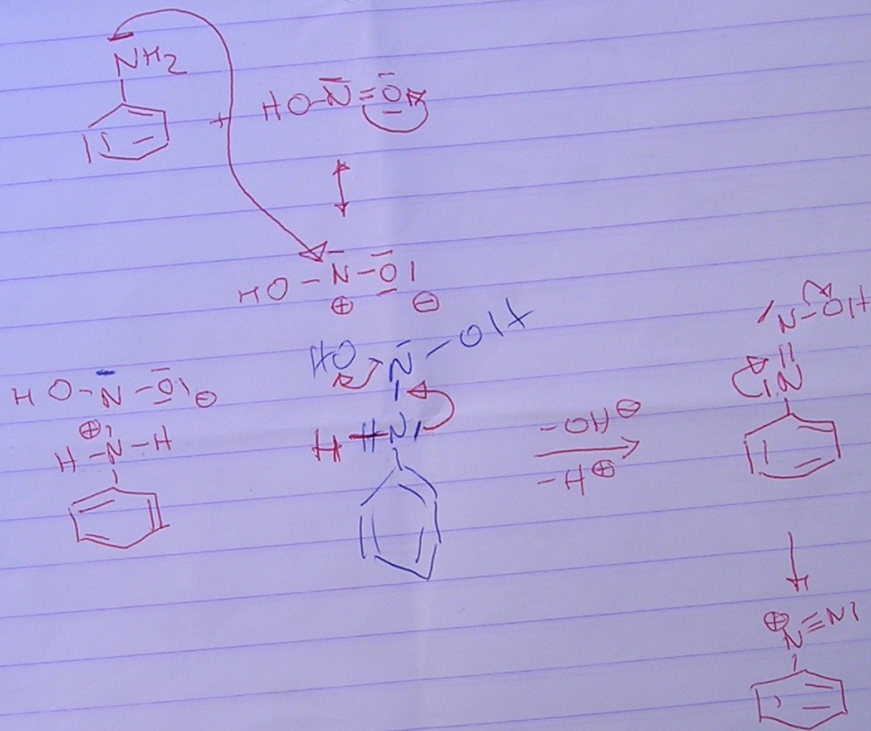 NH2
+ HO-N=O
HO-N-O
⊕ ⊖
HO N-OH
HO-N-O ⊖
⊕
H-N-H
H HN
-OH⊖
-H⊕
N-OH
N
⊕
N≡N